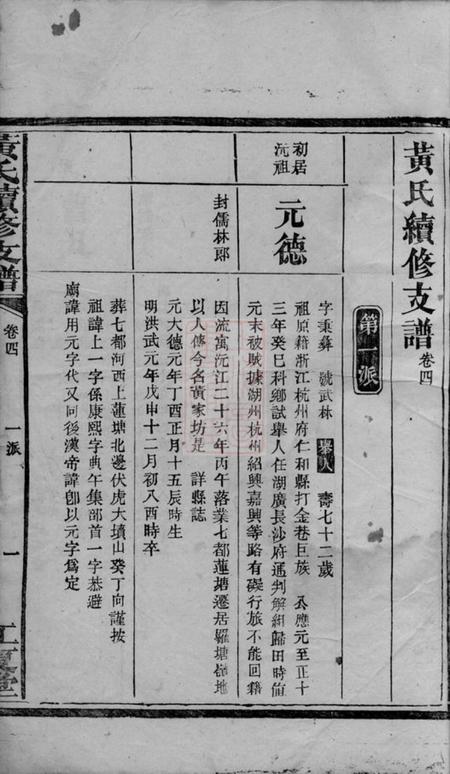 黃氏續修支譜 卷四
第一派
初居沅祖
元德
封儒林郎
字秉彝 號武林 舉人 壽七十二歲
祖原籍浙江杭州府仁和縣打金巷巨族 公應元至正十
三年癸巳科鄉試舉人任湖廣長沙府通判解組歸田時值
元末被賊據湖州杭州紹興嘉興等路有礙行旅不能回籍
因流寓沅江二十六年丙午落業七都蓮塘遷居羅塘 地
以人傳今名黃家坊是 詳縣誌
元大德元年丁酉正月十五辰時生
明洪武元年戊申十二月初八酉時卒
葬七都河西上蓮塘北邊伏虎大墳山癸丁向謹按
祖諱上一字係康熙字典午集部首一字恭避
廟諱用元字代又同後漢帝諱卽以元字爲定
黃氏續修支譜
卷四
一派
一
江夏堂